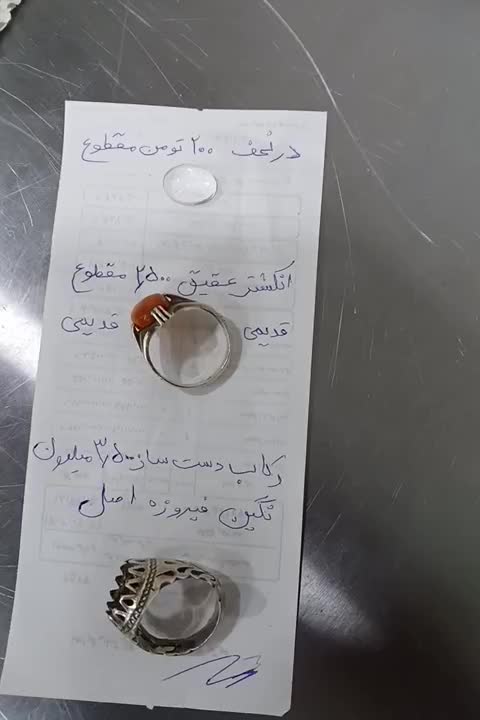 درنجف ۲۰۰ تومن مقطوع
انگشتر عقیق ۲/۵۰۰ مقطوع
قدیمی قدیمی
رکاب دست ساز ۳/۵۰۰ میلیون
نگین فیروزه اصل